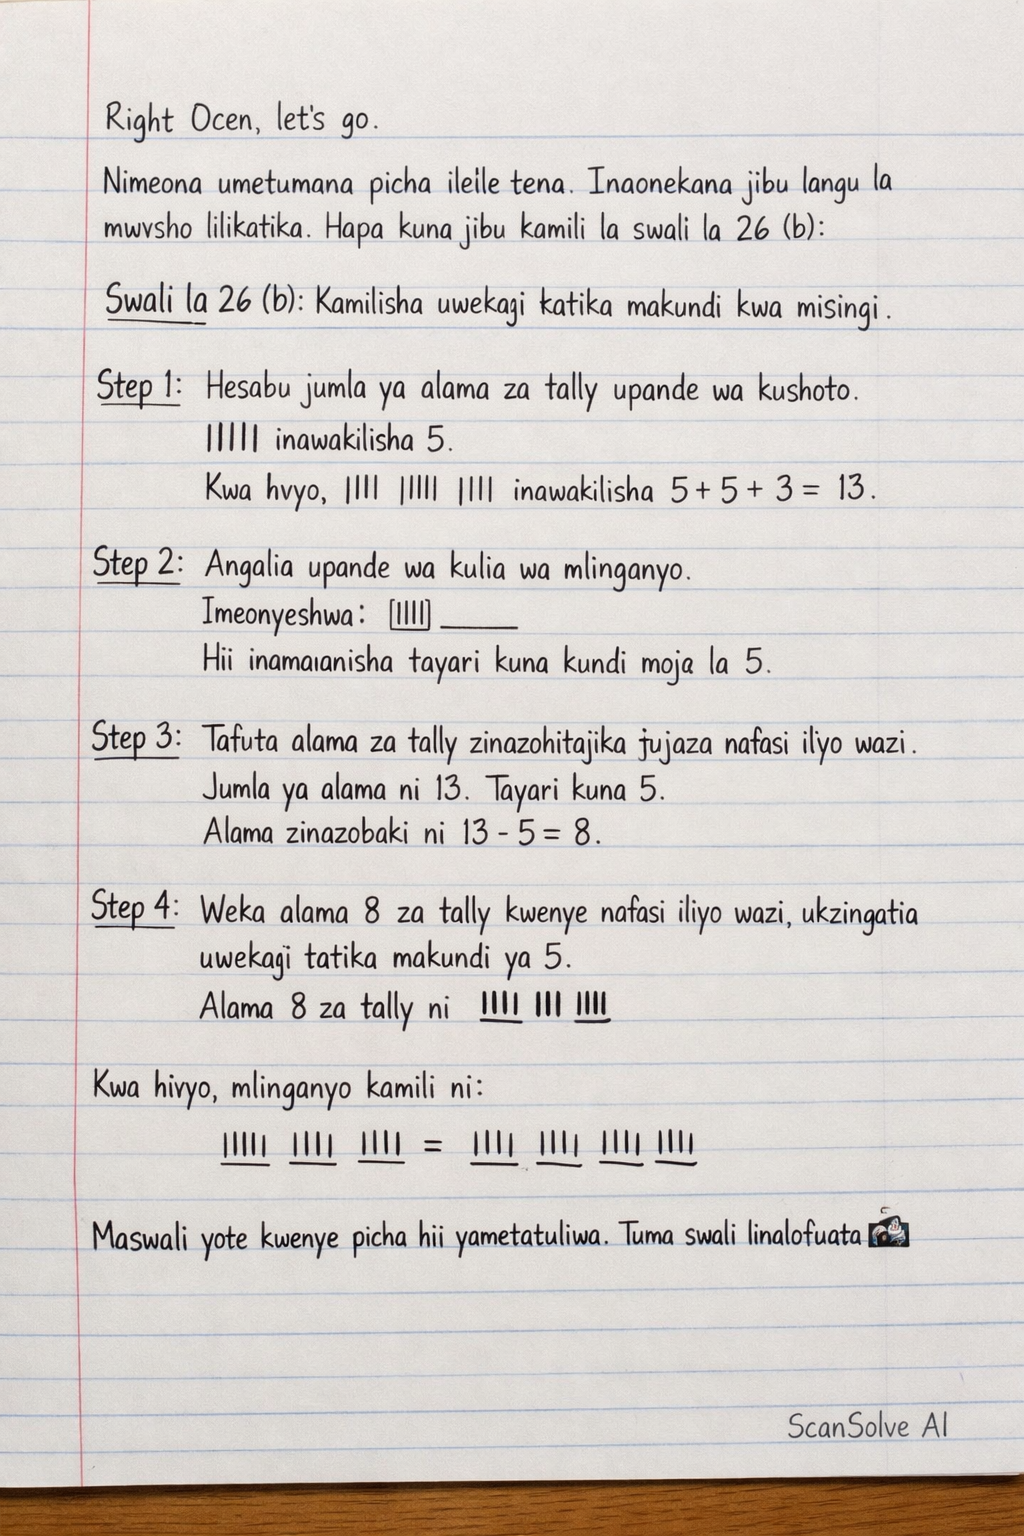 Right Ocen, let's go.
Nimeona umetumana picha ileile tena. Inaonekana jibu langu la
mwvsho lilikatika. Hapa kuna jibu kamili la swali la 26 (b):
Swali la 26 (b): Kamilisha uwekagi katika makundi kwa misingi.
Step 1: Hesabu jumla ya alama za tally upande wa kushoto.
||||| inawakilisha 5.
Kwa hvyo, |||| ||||| |||| inawakilisha 5 + 5 + 3 = 13.
Step 2: Angalia upande wa kulia wa mlinganyo.
Imeonyeshwa: [||||] ______
Hii inamaıanisha tayari kuna kundi moja la 5.
Step 3: Tafuta alama za tally zinazohitajika jujaza nafasi iliyo wazi.
Jumla ya alama ni 13. Tayari kuna 5.
Alama zinazobaki ni 13 - 5 = 8.
Step 4: Weka alama 8 za tally kwenye nafasi iliyo wazi, ukzingatia
uwekagi tatika makundi ya 5.
Alama 8 za tally ni |||| ||| ||||
Kwa hivyo, mlinganyo kamili ni:
||||| |||| |||| = |||| |||| |||| ||||
Maswali yote kwenye picha hii yametatuliwa. Tuma swali linalofuata
ScanSolve AI